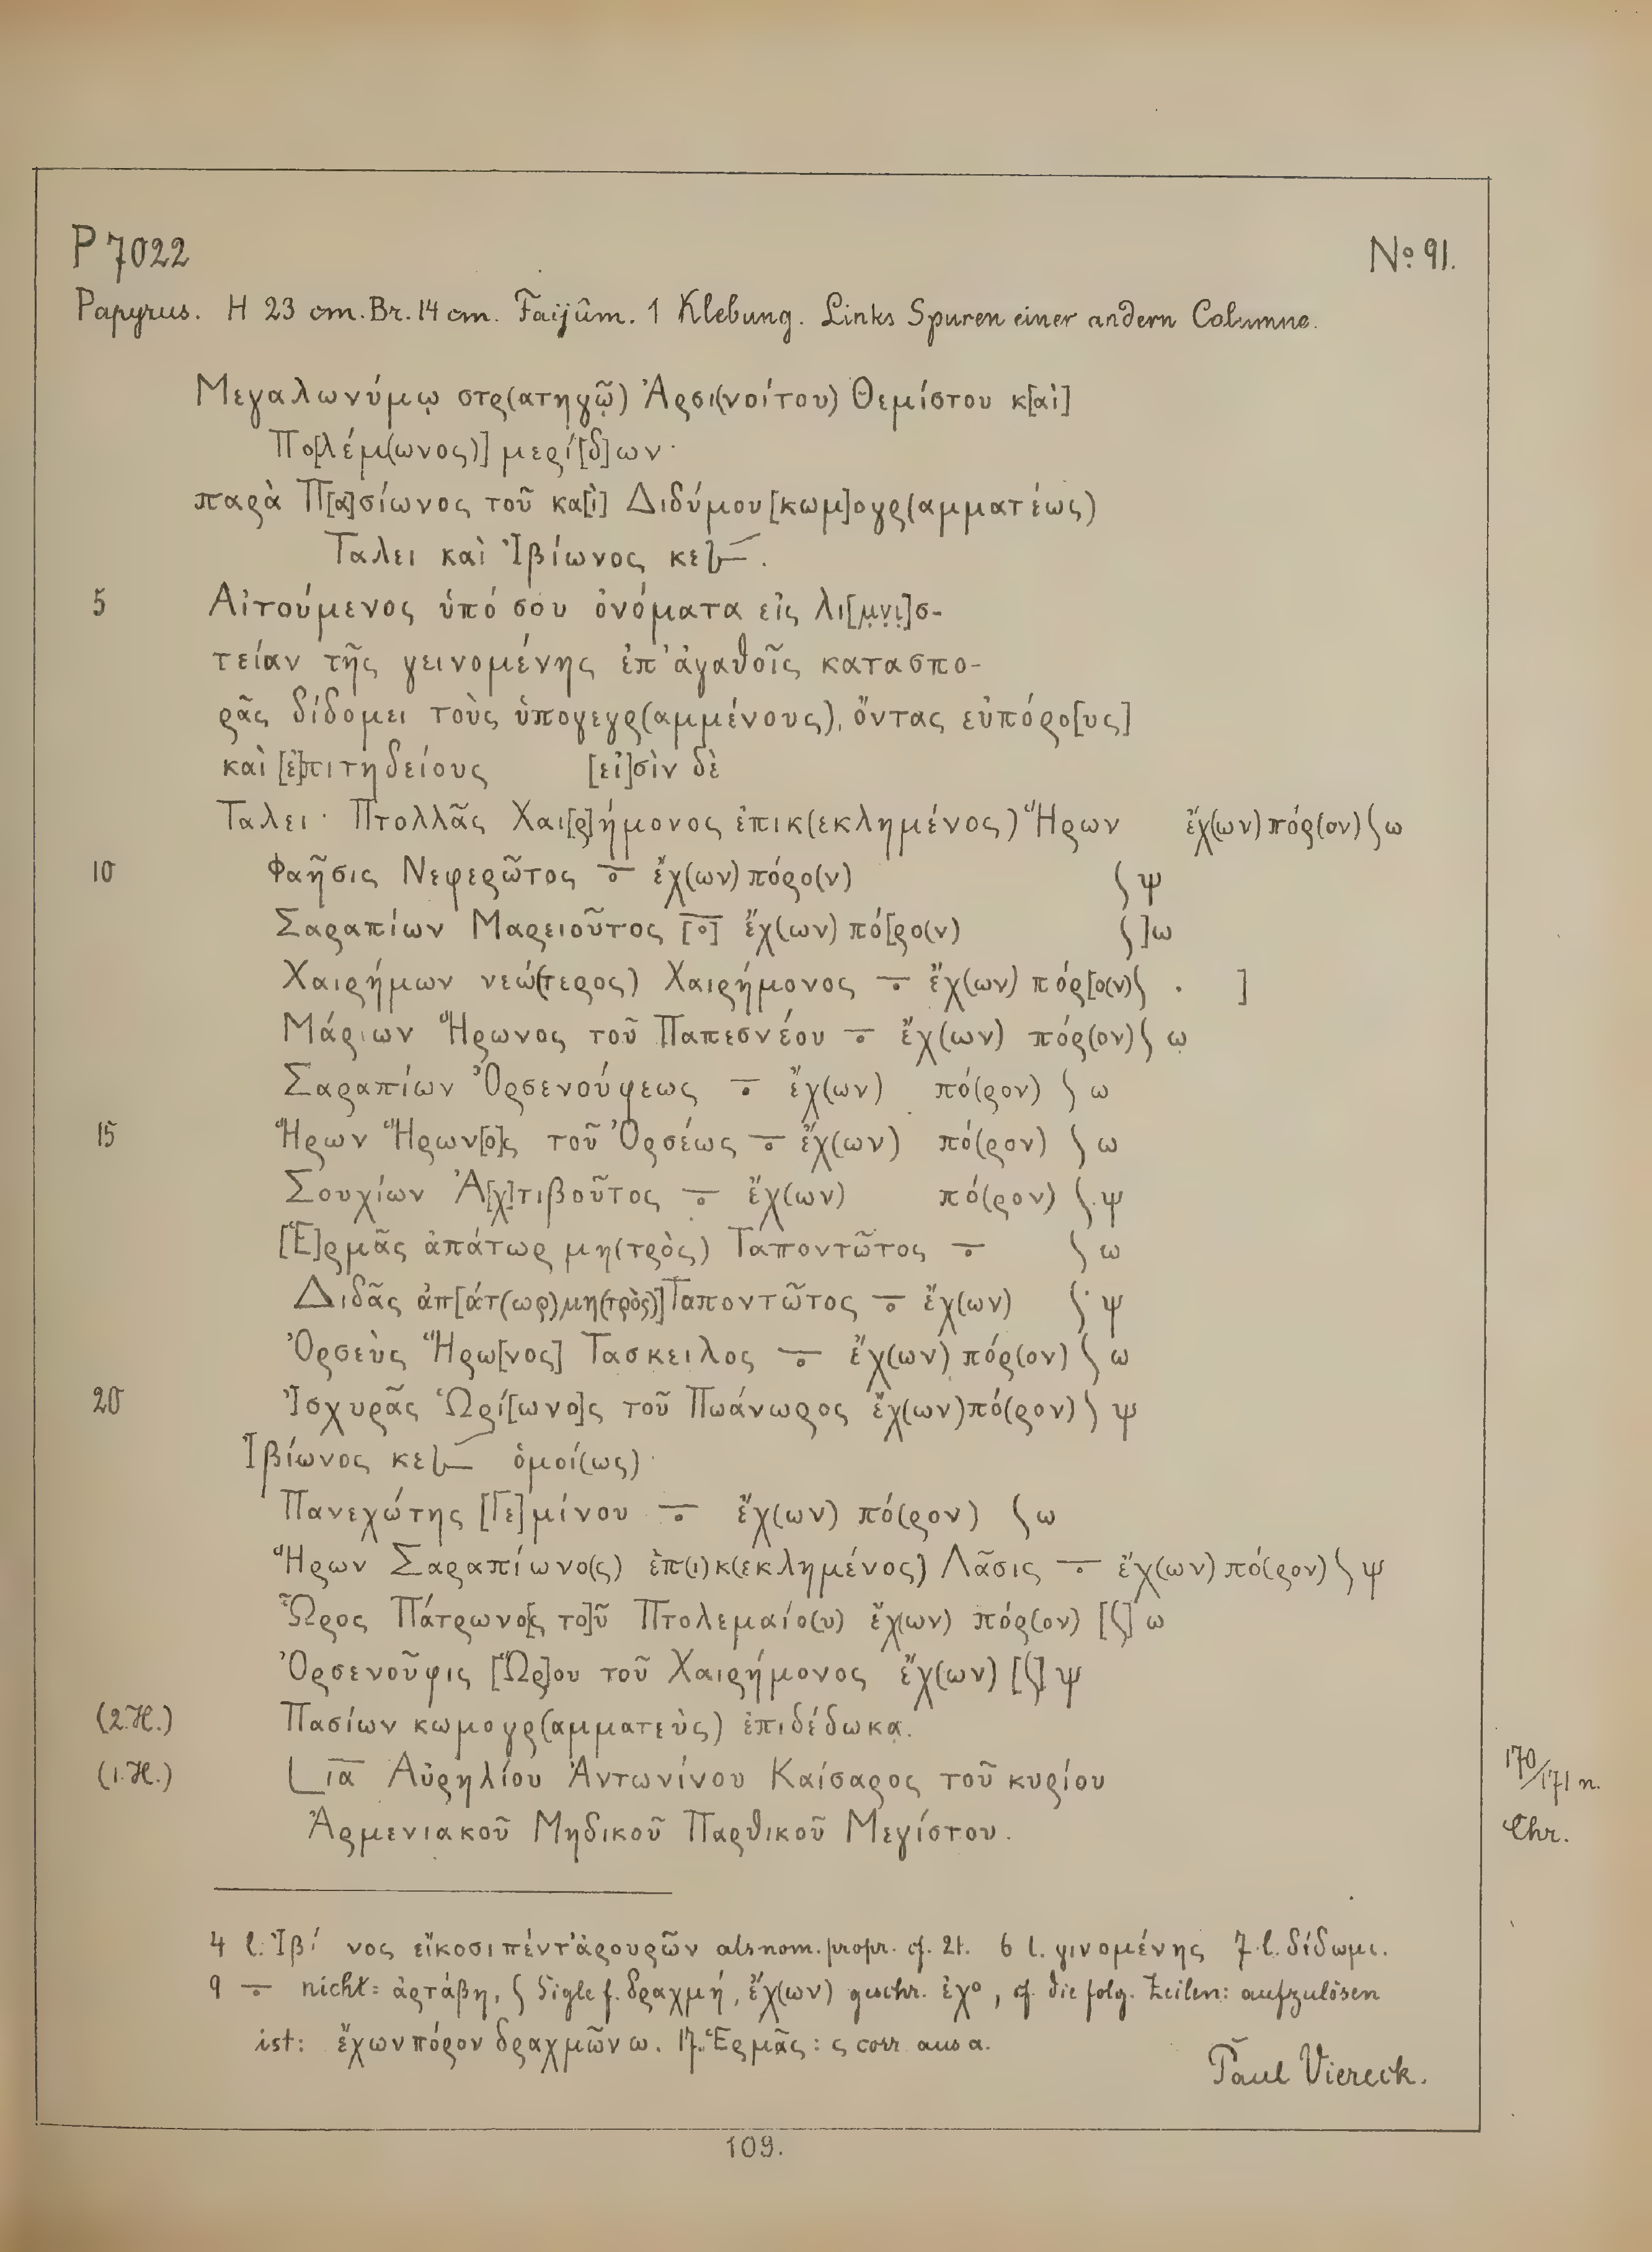 P 7022 No 91.
Papyrus. H 23 cm. Br. 14 cm. Faijûm. 1 Klebung. Links Spuren einer andern Columne.
Μεγαλωνύμῳ στρ(ατηγῷ) Ἀρσι(νοίτου) Θεμίστου κ[αὶ]
Πο[λέμ(ωνος)] μερί[δ]ων·
παρὰ Π[α]σίωνος τοῦ κα[ὶ] Διδύμου [κωμ]ογρ(αμματέως)
Ταλει καὶ Ἰβίωνος κε .
5 Αἰτούμενος ὑπό σου ὀνόματα εἰς λι[μ̣ν̣ι̣]σ-
τείαν τῆς γεινομένης ἐπ' ἀγαθοῖς κατασπο-
ρᾶς δίδομει τοὺς ὑπογεγρ(αμμένους), ὄντας εὐπόρο[υς]
καὶ [ἐ]πιτηδείους [εἰ]σὶν δὲ
Ταλει· Πτολλᾶς Χαι[ρ]ήμονος ἐπικ(εκλημένος) Ἥρων ἔχ(ων) πόρ(ον) ʃ ω
10 Φαῆσις Νεφερῶτος ∸ ἔχ(ων) πόρο(ν) ʃ ψ
Σαραπίων Μαρειοῦτος [∸] ἔχ(ων) πό[ρο(ν) ʃ ]ω
Χαιρήμων νεώ(τερος) Χαιρήμονος ∸ ἔχ(ων) πόρ[ο(ν) ʃ . ]
Μάρων Ἥρωνος τοῦ Παπεσνέου ∸ ἔχ(ων) πόρ(ον) ʃ ω̣
Σαραπίων Ὀρσενούφεως ∸ ἔχ(ων) πό(ρον) ʃ ω
15 Ἥρων Ἥρων[ο]ς τοῦ Ὀρσέως ∸ ἔχ(ων) πό(ρον) ʃ ω
Σουχίων Ἀ[χ]τιβοῦτος ∸ ἔχ(ων) πό(ρον) ʃ ψ
[Ἑ]ρμᾶς ἀπάτωρ μη(τρὸς) Ταποντῶτος ∸ ʃ ω
Διδᾶς ἀπ[άτ(ωρ) μη(τρὸς)] Ταποντῶτος ∸ ἔχ(ων) ʃ ψ
Ὀρσεὺς Ἥρω[νος] Τασκειλος ∸ ἔχ(ων) πόρ(ον) ʃ ω
20 Ἰσχυρᾶς Ὡρί[ωνο]ς τοῦ Πωάνωρος ἔχ(ων) πό(ρον) ʃ ψ
Ἰβίωνος κε ὁμοί(ως)·
Πανεχώτης [Γε]μίνου ∸ ἔχ(ων) πό(ρον) ʃ ω
Ἥρων Σαραπίωνο(ς) ἐπ(ι)κ(εκλημένος) Λᾶσις ∸ ἔχ(ων) πό(ρον) ʃ ψ
Ὧρος Πάτρωνο[ς το]ῦ Πτολεμαίο(υ) ἔχ(ων) πόρ(ον) [ʃ] ω
Ὀρσενοῦφις [Ὥρ]ου τοῦ Χαιρήμονος ἔχ(ων) [ʃ] ψ
(2. H.) Πασίων κωμογρ(αμματεὺς) ἐπιδέδωκα̣.
(1. H.) L ι̅α̅ Αὐρηλίου Ἀντωνίνου Καίσαρος τοῦ κυρίου 170/171 n.
Ἀρμενιακοῦ Μηδικοῦ Παρθικοῦ Μεγίστου. Chr.
4 l. Ἰβί νος εἴκοσι πέντ' ἀρουρῶν als nom. propr. cf. 21. 6 l. γινομένης 7. l. δίδωμι.
9 ∸ nicht = ἀρτάβη, ʃ Sigle f. δραχμή, ἔχ(ων) geschr. ἐχο, cf. die folg. Zeilen: aufzulösen
ist: ἔχων πόρον δραχμῶν ω. 17. Ἑρμᾶς: ς corr. aus α.
Paul Viereck.
109.